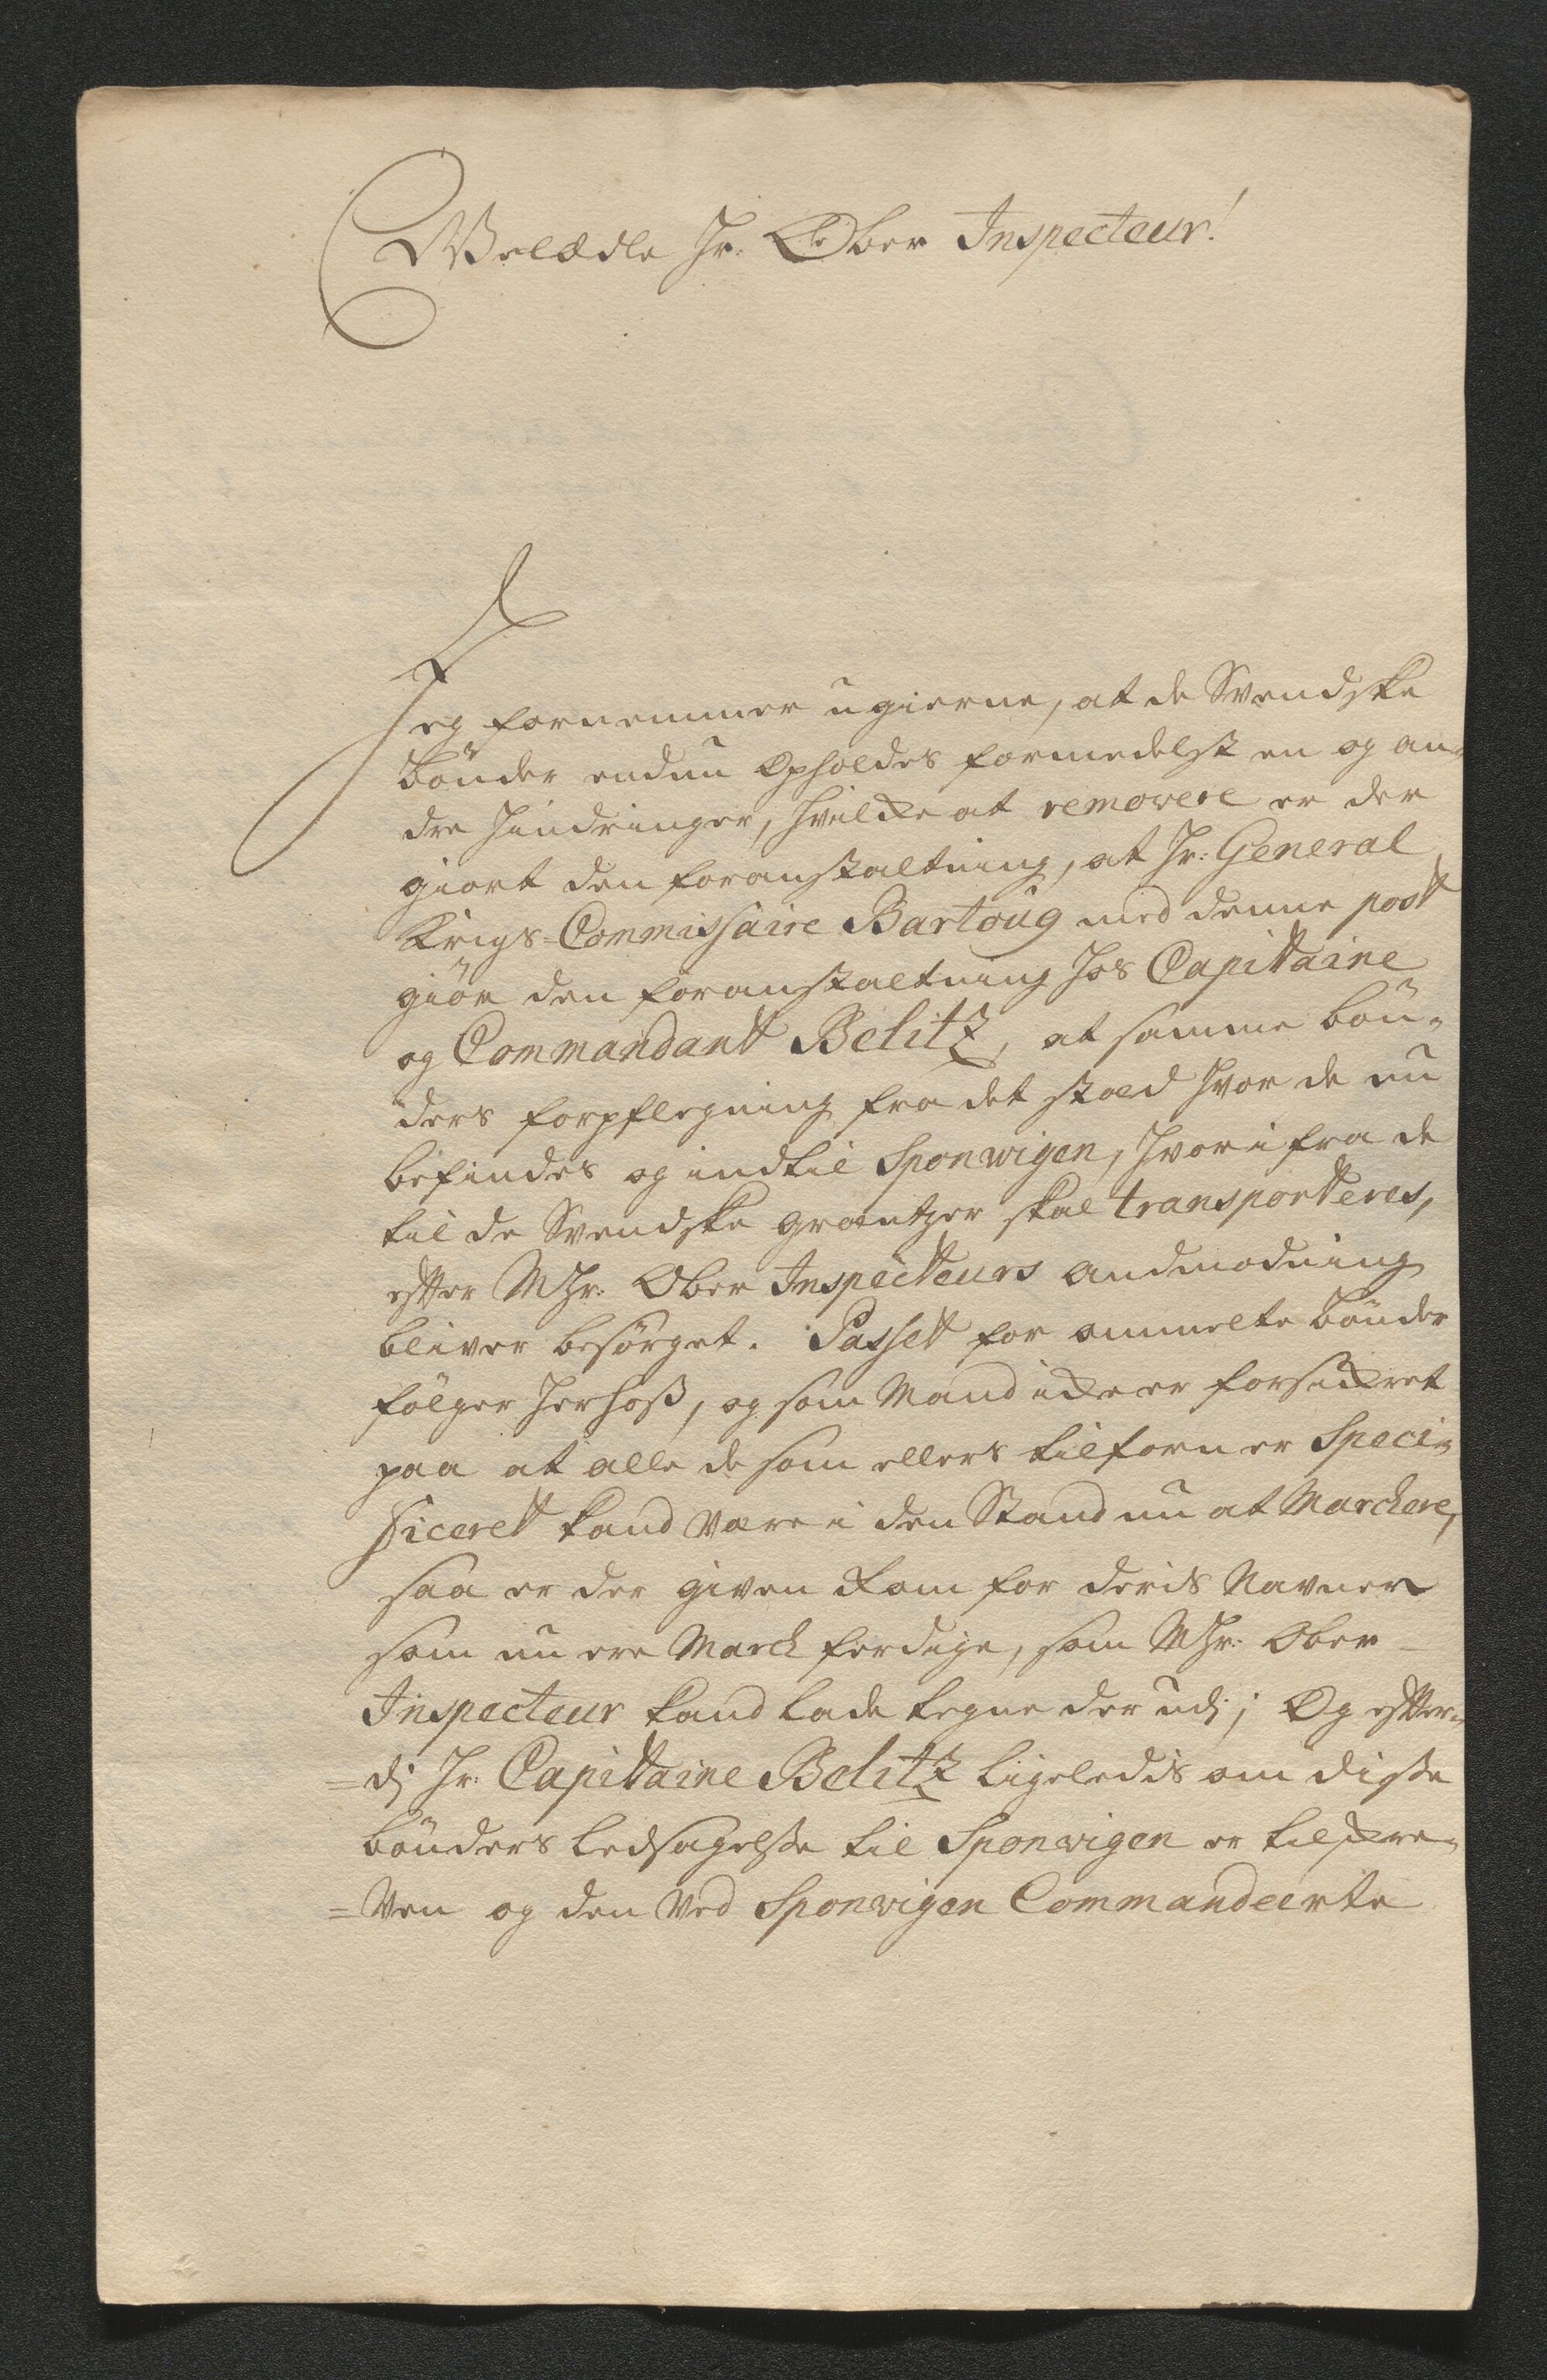 Welædle Hr. Ober Inspecteur!
Jeg fornemmer ugierne, at de Svendske
bönder endnu Opholdes formedelst en og an-
dre Hindringer, hvilcke at removere er der
giort den foranstaltning, at Hr: General
Krigs-Commissaire Bartoug med denne post
giör den foranstaltning hos Capitaine
og Commandant Belitz, at samme bön-
ders forpflegning fra det stæd hvor de nu
befindes og indtil Sponwigen, hvorifra de
til de Svendske grentzer skal transporteres,
efter MHr: Ober Inspecteurs andmodning
bliver besörget. Passet for ommelte bönder
fölger herhoß, og som Mand icke er forsickret
paa at alle de som ellers tilforn er Speci-
ficeret kand være i den Stand nu at Marchere,
saa er der given Rom for deris Navner
som nu ere March ferdige, som MHr: Ober
Inspecteur kand lade tegne der udj; Og efter-
=dj Hr: Capitaine Belitz ligeledis om disse
bönders ledsagelsse til Sponvigen er tilskre-
=Ven og den Ved Sponvigen Commandeerte